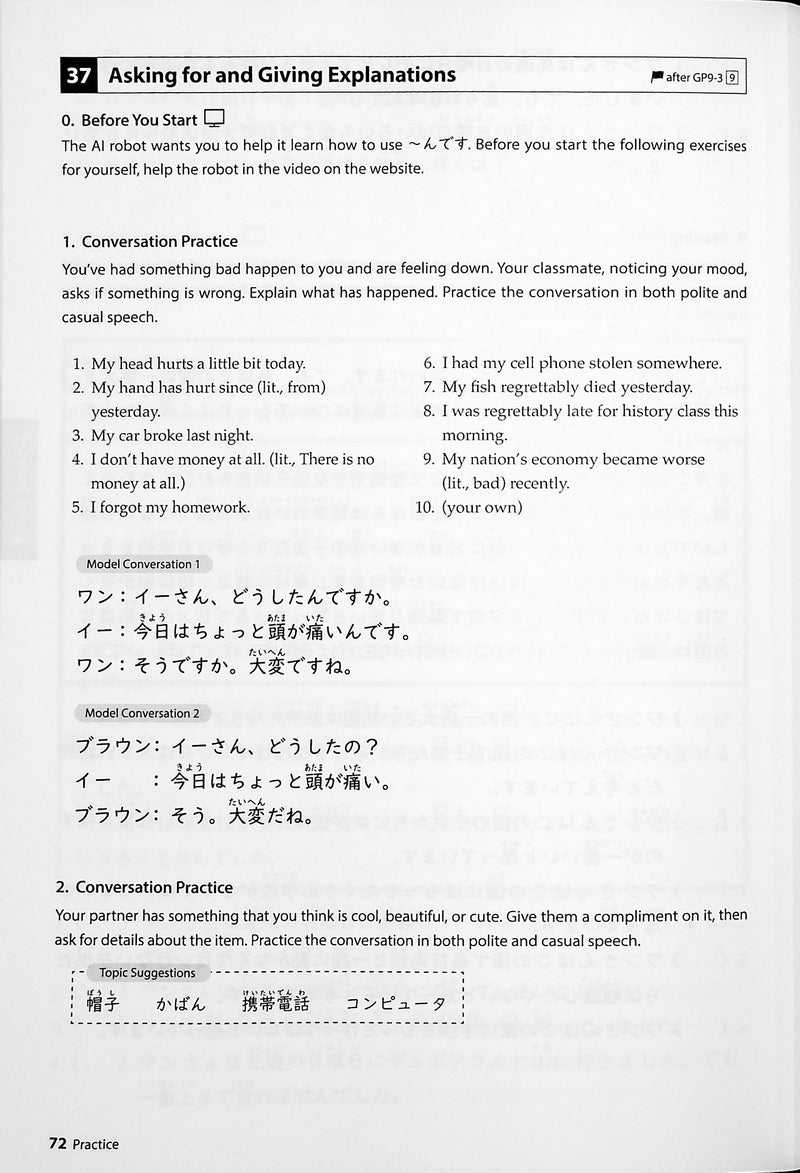 37 Asking for and Giving Explanations
after GP9-3 9
0. Before You Start
The AI robot wants you to help it learn how to use ～んです. Before you start the following exercises
for yourself, help the robot in the video on the website.
1. Conversation Practice
You've had something bad happen to you and are feeling down. Your classmate, noticing your mood,
asks if something is wrong. Explain what has happened. Practice the conversation in both polite and
casual speech.
1. My head hurts a little bit today.
2. My hand has hurt since (lit., from)
yesterday.
3. My car broke last night.
4. I don't have money at all. (lit., There is no
money at all.)
5. I forgot my homework.
6. I had my cell phone stolen somewhere.
7. My fish regrettably died yesterday.
8. I was regrettably late for history class this
morning.
9. My nation's economy became worse
(lit., bad) recently.
10. (your own)
Model Conversation 1
ワン：イーさん、どうしたんですか。
きょう あたま いた
イー：今日はちょっと頭が痛いんです。
たいへん
ワン：そうですか。大変ですね。
Model Conversation 2
ブラウン：イーさん、どうしたの？
きょう あたま いた
イー　　：今日はちょっと頭が痛い。
たいへん
ブラウン：そう。大変だね。
2. Conversation Practice
Your partner has something that you think is cool, beautiful, or cute. Give them a compliment on it, then
ask for details about the item. Practice the conversation in both polite and casual speech.
Topic Suggestions
ぼうし けいたいでんわ
帽子 かばん 携帯電話 コンピュータ
72 Practice